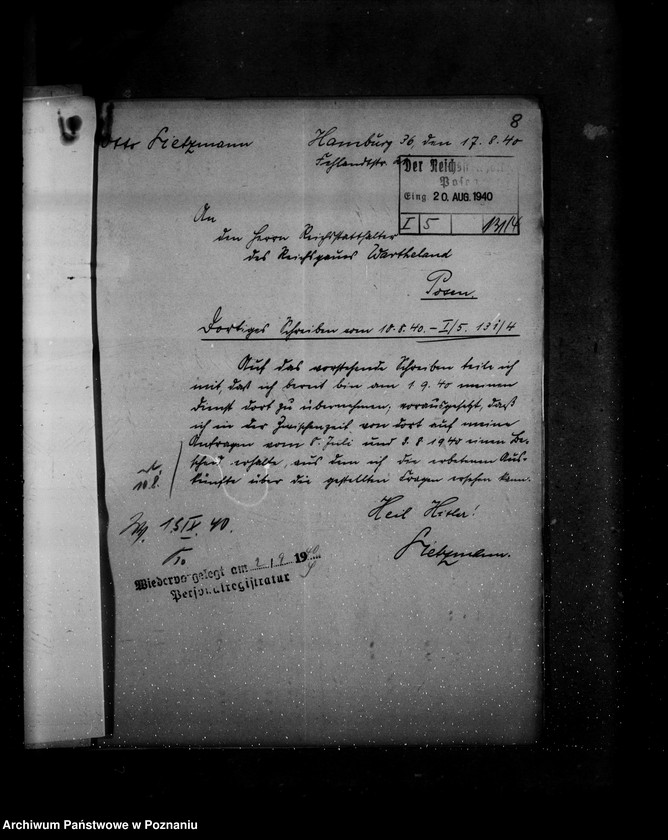 8
Otto Sietzmann
Hamburg 36, den 17.8.40
Fehlandtstr.
Der Reichs
Posen
Eing 20. AUG. 1940
I 5 131/4
An
den Herrn Reichsstatthalter
des Reichsgaues Wartheland
Posen.
Dortiges Schreiben vom 10.8.40. – I/5. 131/4
Auf das vorstehende Schreiben teile ich
mit, daß ich bereit bin am 1.9.40 meinen
Dienst dort zu übernehmen, vorausgesetzt, daß
ich in der Zwischenzeit von dort auf meine
Anfragen vom 8. Juli und 3.8.1940 einen Be-
scheid erhalte, aus dem ich die erbetenen Aus-
künfte über die gestellten Fragen ersehen kann.
Heil Hitler!
Sietzmann.
Wv. 15.IX.40.
Wiedervorgelegt am 2/9 1940
Personalregistratur
Archiwum Państwowe w Poznaniu